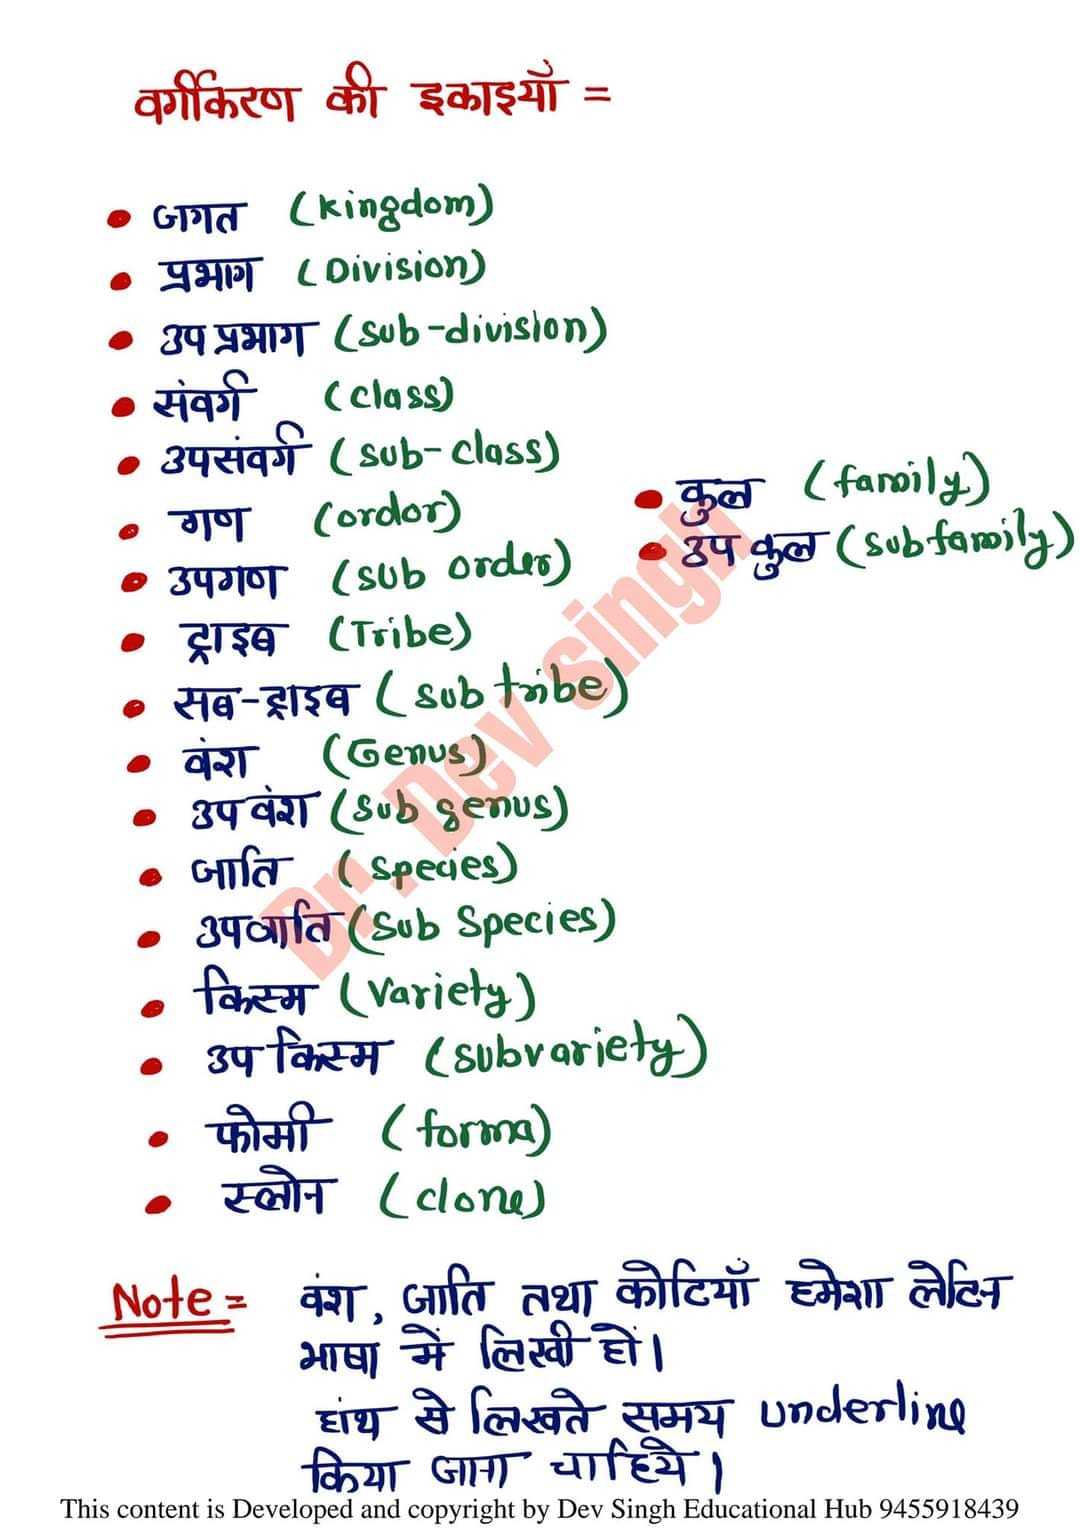 वर्गीकरण की इकाइयाँ =
• जगत (kingdom)
• प्रभाग (Division)
• उप प्रभाग (sub-division)
• संवर्ग (class)
• उपसंवर्ग (sub-class)
• गण (ordor)
• उपगण (sub order)
• कुल (family)
• उप कुल (subfamily)
• ट्राइब (Tribe)
• सब-ट्राइब (sub tribe)
• वंश (Genus)
• उप वंश (Sub genus)
• जाति (species)
• उपजाति (Sub Species)
• किस्म (Variety)
• उप किस्म (subvariety)
• फोर्मी (forma)
• स्लोन (clone)
Note = वंश, जाति तथा कोटियाँ हमेशा लेटिन
भाषा में लिखी हों।
हांथ से लिखते समय underline
किया जाना चाहिये।
Dr. Dev singh
This content is Developed and copyright by Dev Singh Educational Hub 9455918439